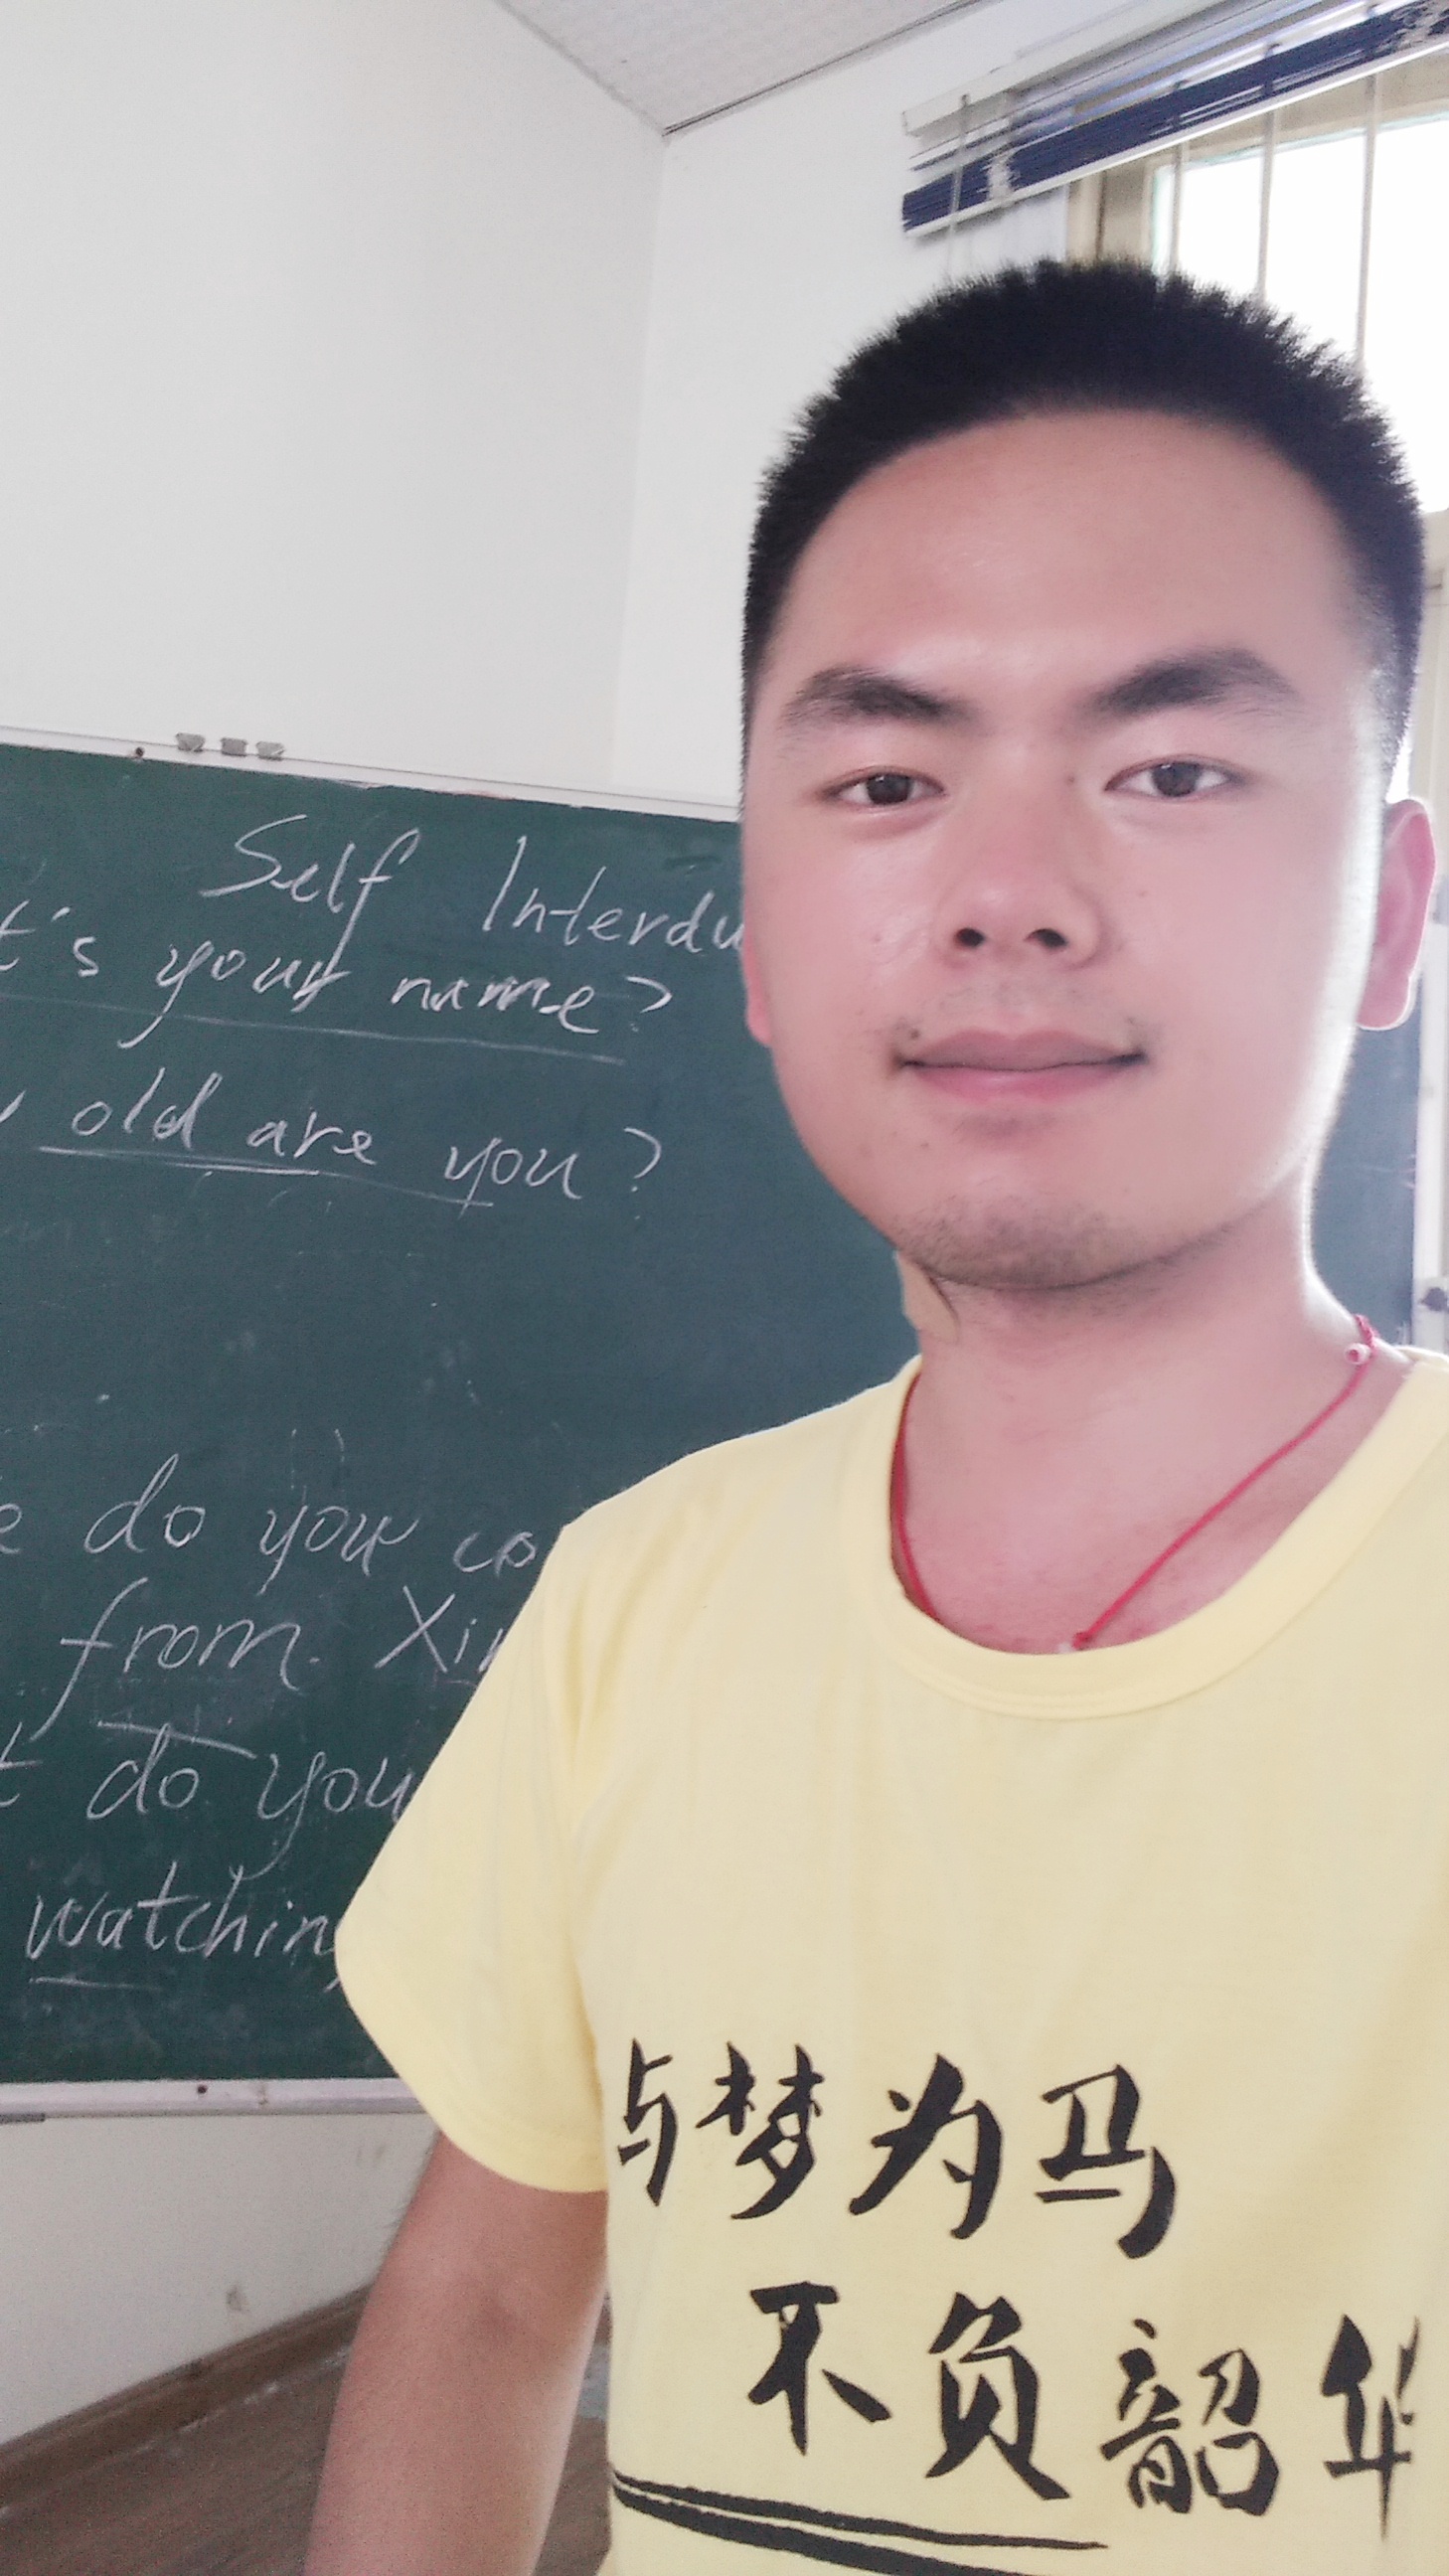 Self Interdu
t's your name?
old are you?
e do you co
from Xin
t do you
watching
与梦为马
不负韶华